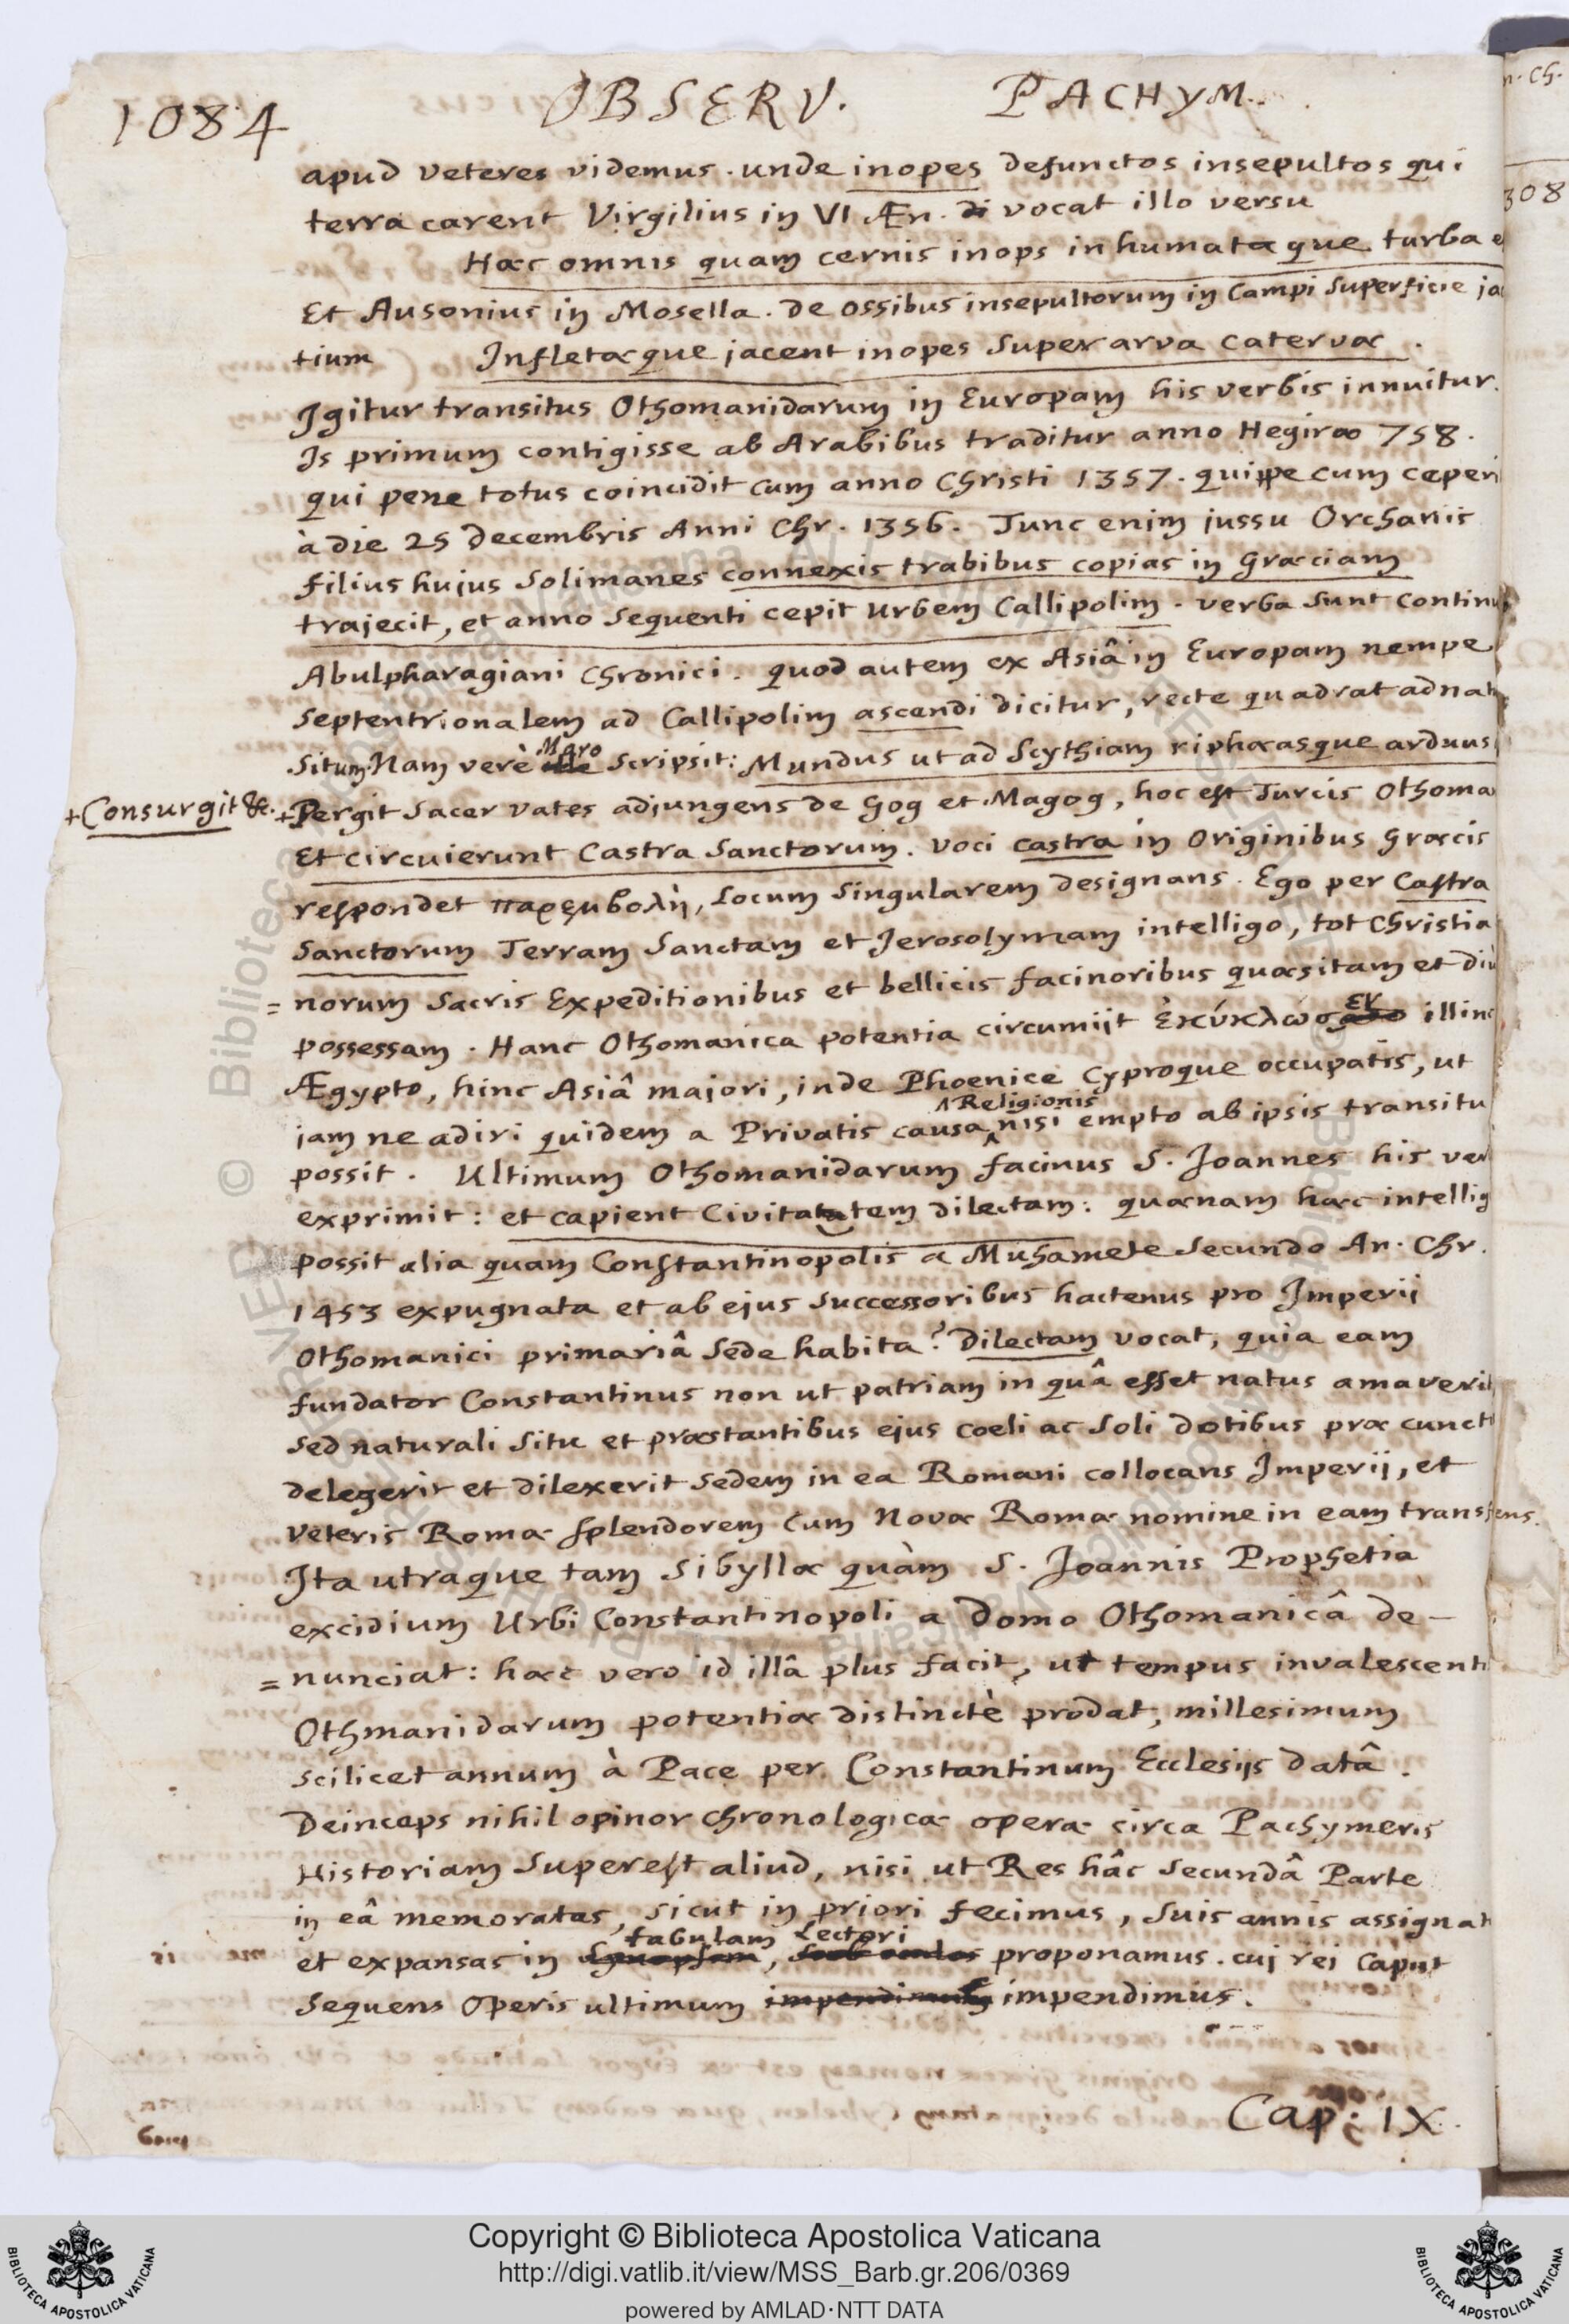 1084 OBSERV. PACHYM.
apud veteres videmus. unde inopes defunctos insepultos qui
terra carent Virgilius in VI Æn. vocat illo versu
Hæc omnis quam cernis inops inhumataque turba e
Et Ausonius in Mosella. de ossibus insepultorum in Campi superficie ja
tium Infletæque jacent inopes super arva catervæ.
Igitur transitus Othomanidarum in Europam his verbis innuitur.
Is primum contigisse ab Arabibus traditur anno Hegiræ 758.
qui pene totus coincidit cum anno Christi 1357. quippe cum ceperi
à die 25 Decembris Anni Chr. 1356. Tunc enim jussu Orchanis
filius hujus Solimanes connexis trabibus copias in Græciam
trajecit, et anno sequenti cepit Urbem Callipolim. verba sunt continu
Abulpharagiani Chronici. quod autem ex Asiâ in Europam nempe
septentrionalem ad Callipolim ascendi dicitur, recte quadrat ad nat
situm. Nam verè Maro scripsit: Mundus ut ad Scythiam riphæasque arduus
+Consurgit &c. +Pergit sacer vates adjungens de Gog et Magog, hoc est Turcis Othoma
Et circuierunt Castra Sanctorum. voci castra in Originibus Græcis
respondet παρεμβολὴ, Locum singularem designans. Ego per Castra
Sanctorum Terram Sanctam et Jerosolymam intelligo, tot Christia
= norum sacris Expeditionibus et bellicis facinoribus quæsitam et diù
possessam. Hanc Othomanica potentia circumiit ἐκύκλωσεν illinc
Ægypto, hinc Asiâ majori, inde Phoenice Cyproque occupatis, ut
jam ne adiri quidem a Privatis causa Religionis nisi empto ab ipsis transitu
possit. Ultimum Othomanidarum facinus S. Joannes his ver
exprimit: et capient Civitatatem dilectam: quænam hæc intellig
possit alia quam Constantinopolis a Muhamete secundo An. Chr.
1453 expugnata et ab ejus successoribus hactenus pro Imperii
Othomanici primariâ sede habita? Dilectam vocat, quia eam
fundator Constantinus non ut patriam in quâ esset natus amaverit
sed naturali situ et præstantibus ejus coeli ac soli dotibus præ cunct
delegerit et dilexerit sedem in ea Romani collocans Imperij, et
veteris Romæ splendorem cum Novæ Romæ nomine in eam transfens.
Ita utraque tam Sibyllæ quàm S. Joannis Prophetia
excidium Urbi Constantinopoli a Domo Othomanicâ de-
= nunciat: hæc vero id illâ plus facit, ut tempus invalescenti
Othmanidarum potentiæ distinctè prodat, millesimum
scilicet annum à Pace per Constantinum Ecclesijs datâ.
Deinceps nihil opinor Chronologicæ operæ circa Pachymeris
Historiam superest aliud, nisi ut Res hâc secundâ Parte
in eâ memoratas, sicut in priori fecimus, suis annis assignat
et expansas in tabulam, Lectori proponamus. cuj rei Caput
sequens Operis ultimum impendimus impendimus.
Cap: IX.
n. Ch.
308
Copyright © Biblioteca Apostolica Vaticana
http://digi.vatlib.it/view/MSS_Barb.gr.206/0369
powered by AMLAD·NTT DATA
BIBLIOTECA APOSTOLICA VATICANA
BIBLIOTECA APOSTOLICA VATICANA